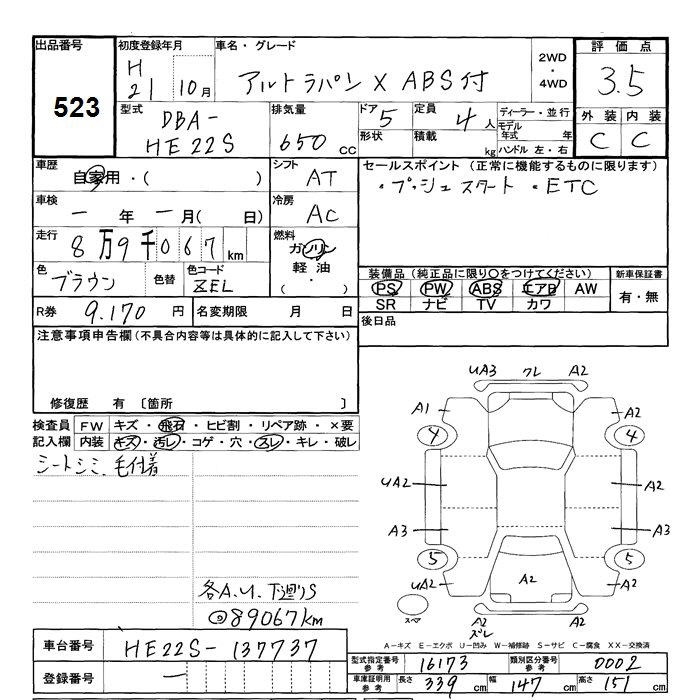 出品番号 初度登録年月 車名・グレード 2WD・4WD 評価点
523 H21 10月 アルトラパン X ABS付 3.5
型式 排気量 ドア 定員 ディーラー・並行 外装 内装
DBA-HE22S 650cc 5 4人 モデル年式 年 C C
形状 積載 kg ハンドル 左・右
車歴 シフト セールスポイント (正常に機能するものに限ります)
自家用・( ) AT ・プッシュスタート ・ETC
車検 冷房
一年 一月( 日) AC
走行 燃料
8万9千067km ガソリン
軽油
( ・ )
色 色替 色コード 装備品(純正品に限り○をつけてください) 新車保証書
ブラウン ZEL PS PW ABS エアB AW 有・無
SR ナビ TV カワ
R券 9.170円 名変期限 月 日 後日品
注意事項申告欄(不具合内容等は具体的に記入して下さい)
修復歴 有 〔箇所 〕
検査員 FW キズ・飛石・ヒビ割・リペア跡・×要
記入欄 内装 キズ・汚レ・コゲ・穴・スレ・キレ・破レ
シートシミ、毛付着
各A.U.下廻りS
@89067km
UA3 クレ A2
A1 A2
4 4
UA2 A2
A3 A3
5 5
UA2 A2 A2
スペア A2 A2
ズレ
A-キズ E-エクボ U-凹み W-補修跡 S-サビ C-腐食 XX-交換済
車台番号 HE22S-137737
型式指定番号 参考 16173 類別区分番号 参考 0002
登録番号 一
車庫証明用 参考 長さ 339cm 幅 147cm 高さ 151cm